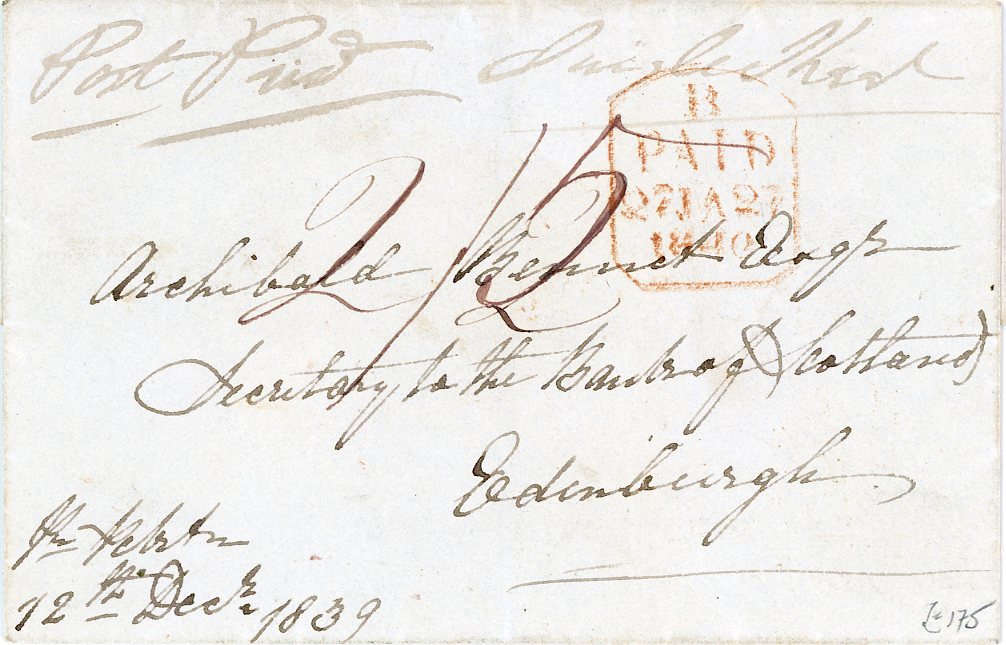 Post Paid Single Sheet
B
PAID
27JA27
1840
2/2
Archibald Bennet Esqr
Secretary to the Bank of Scotland
Edinburgh
12th Decr 1839
£175